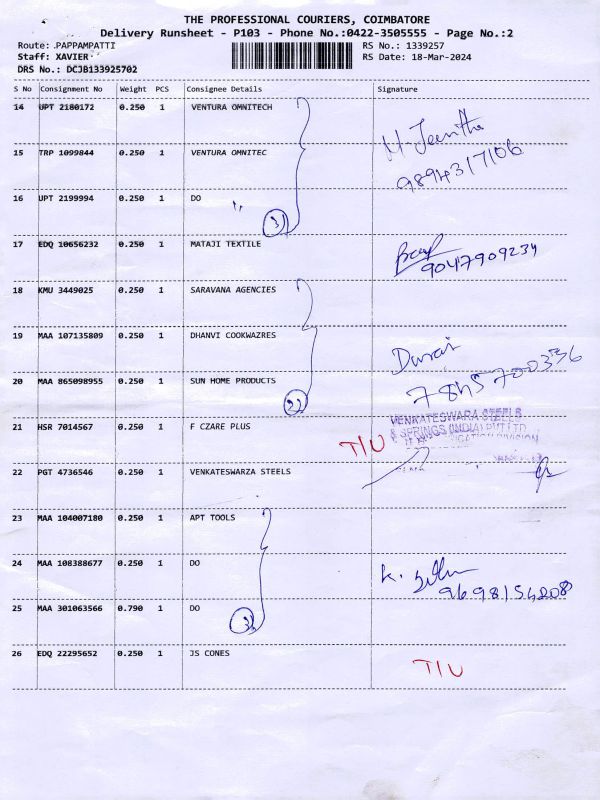 THE PROFESSIONAL COURIERS, COIMBATORE
Delivery Runsheet - P103 - Phone No.:0422-3505555 - Page No.:2
Route: .PAPPAMPATTI RS No.: 1339257
Staff: XAVIER RS Date: 18-Mar-2024
DRS No.: DCJB133925702
S No Consignment No Weight PCS Consignee Details Signature
14 UPT 2180172 0.250 1 VENTURA OMNITECH
15 TRP 1099844 0.250 1 VENTURA OMNITEC
9894317106
16 UPT 2199994 0.250 1 DO
3
17 EDQ 10656232 0.250 1 MATAJI TEXTILE
9047909234
18 KMU 3449025 0.250 1 SARAVANA AGENCIES
19 MAA 107135809 0.250 1 DHANVI COOKWAZRES
Durai
20 MAA 865098955 0.250 1 SUN HOME PRODUCTS
7845700336
21 HSR 7014567 0.250 1 F CZARE PLUS
T/U
VENKATESWARA STEELS
& SPRINGS (INDIA) PVT LTD
22 PGT 4736546 0.250 1 VENKATESWARZA STEELS
23 MAA 104007180 0.250 1 APT TOOLS
24 MAA 108388677 0.250 1 DO
9698154208
25 MAA 301063566 0.790 1 DO
3
26 EDQ 22295652 0.250 1 JS CONES
T/U